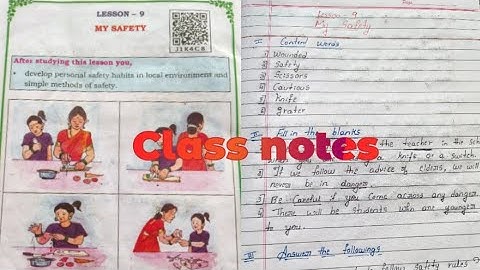 LESSON – 9
MY SAFETY
J1K4C8
After studying this lesson you,
• develop personal safety habits in local environment and
simple methods of safety.
Class notes
Lesson 9
My Safety
I Content words
1) Wounded
2) Safety
3) Scissors
4) Cautious
5) Knife
6) grater
II Fill in the blanks
the teacher in the sch
a knife or a switch.
2) If we follow the advice of elders, we will
never be in danger.
3) Be careful if you come across any danger.
4) There will be students who are younger
to you.
III Answer the followings
follow safety rules ?